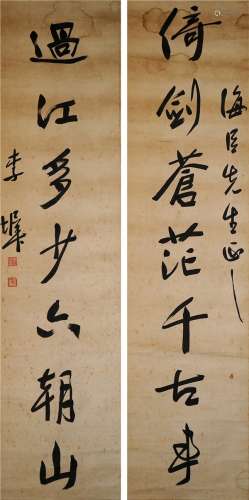 倚劍蒼茫千古事
海臣先生正之
過江多少六朝山
李墀